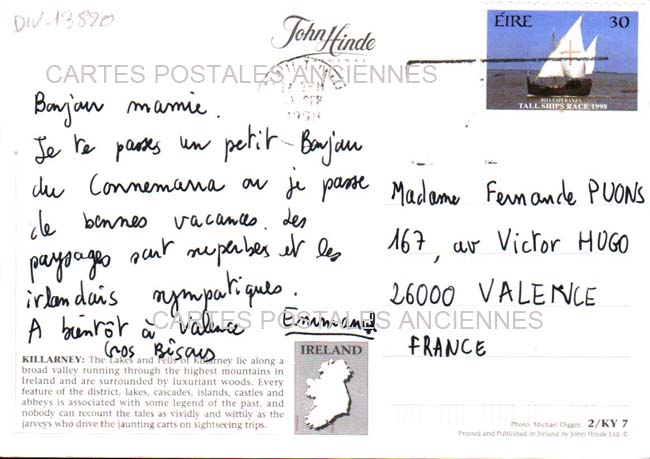 DIV-13820
John Hinde
ORIGINAL
ÉIRE 30
BOA ESPERANZA
TALL SHIPS RACE 1998
CARTES POSTALES ANCIENNES
1998
Bonjour mamie.
Je te passes un petit Bonjour
du Connemara ou je passe
de bonnes vacances. Les
paysages sont superbes et les
irlandais sympatiques.
A bientôt à Valence
Gros Bisous
Madame Fernande PUONS
167, av Victor HUGO
26000 VALENCE
FRANCE
CARTES POSTALES ANCIENNES
KILLARNEY: The Lakes and Fells of Killarney lie along a
broad valley running through the highest mountains in
Ireland and are surrounded by luxuriant woods. Every
feature of the district, lakes, cascades, islands, castles and
abbeys is associated with some legend of the past, and
nobody can recount the tales as vividly and wittily as the
jarveys who drive the jaunting carts on sightseeing trips.
IRELAND
Photo: Michael Diggin. 2/KY 7
Printed and Published in Ireland by John Hinde Ltd. ®